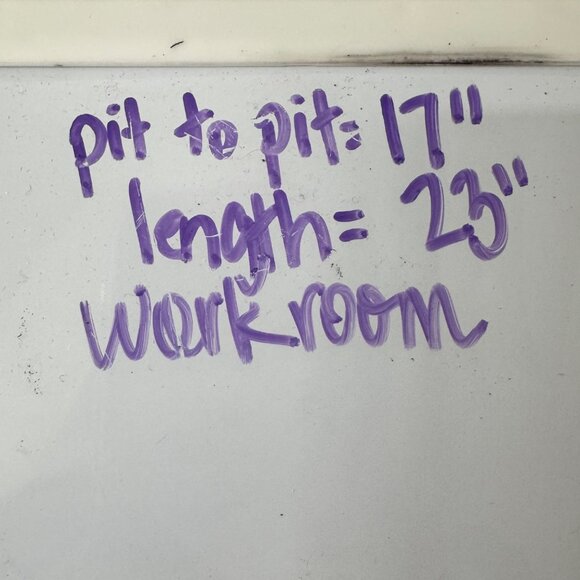 pit to pit: 17"
length = 23"
workroom